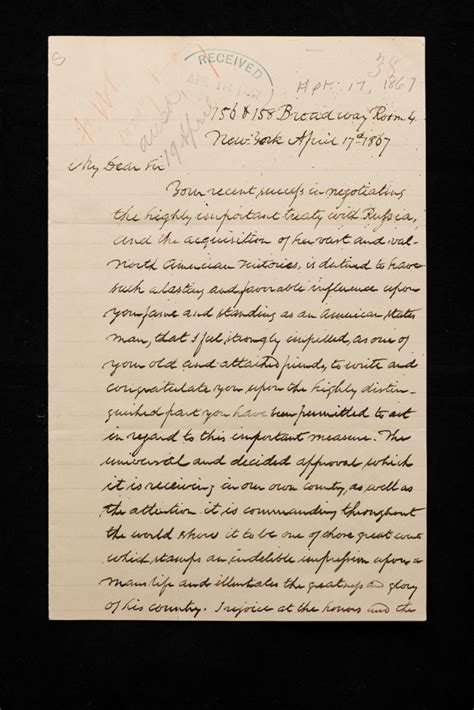 RECEIVED
Apr. 17, 1867
38
156 & 158 Broadway Room 4
New York April 17th 1867
My Dear Sir
Your recent success in negotiating
the highly important treaty with Russia,
and the acquisition of her vast and val-
North American Territories, is destined to have
such a lasting and favorable influence upon
your fame and standing as an American states
man, that I feel strongly impelled, as one of
your old and attached friends, to write and
congratulate you upon the highly distin-
guished part you have been permitted to act
in regard to this important measure. The
universal and decided approval which
it is receiving in our own country, as well as
the attention it is commanding throughout
the world show it to be one of those great
which stamps an indelible impression upon a
mans life and illustrates the greatness and glory
of his country. I rejoice at the honors and the